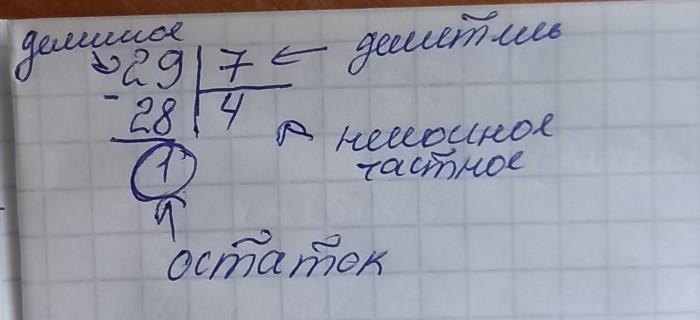 делимое
29 7 делитель
- 28 4
неполное
частное
1
остаток